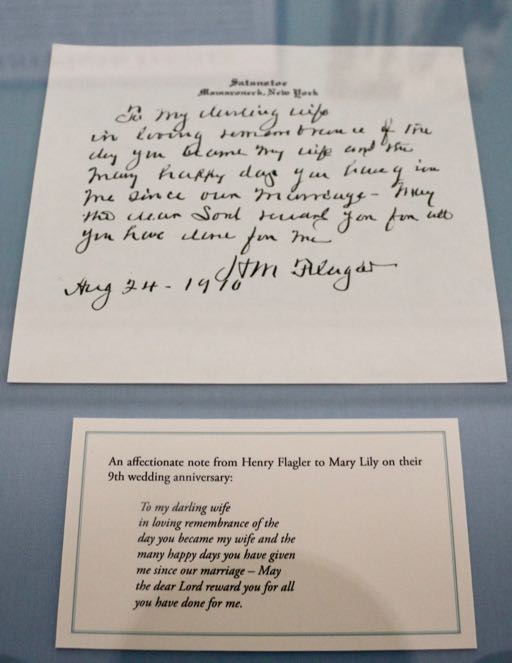 Satanstoe
Mamaroneck, New York
To my darling wife
in loving remembrance of the
day you became my wife and the
many happy days you have given
me since our marriage – May
the dear Lord reward you for all
you have done for me
HM Flagler
Aug 24 – 1910
An affectionate note from Henry Flagler to Mary Lily on their
9th wedding anniversary:
To my darling wife
in loving remembrance of the
day you became my wife and the
many happy days you have given
me since our marriage – May
the dear Lord reward you for all
you have done for me.